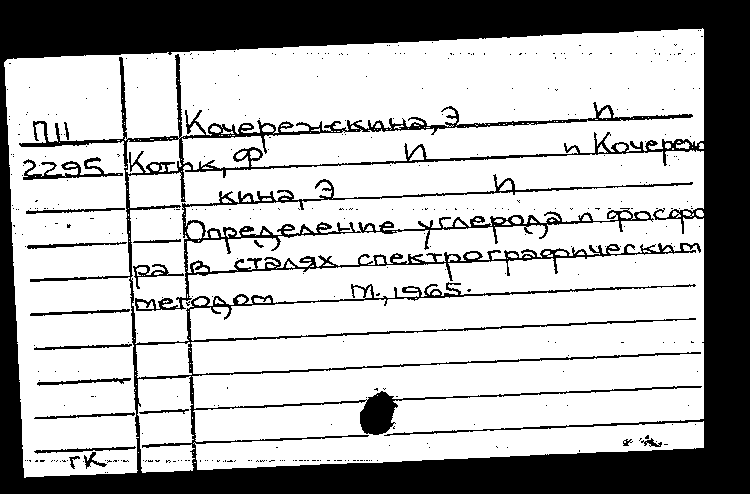 П11 Кочережскина, Э И
2295 Котик, Ф И и Кочереж
кина, Э И
Определение углерода и фосфо
ра в сталях спектрографическим
методом М., 1965.
ГК